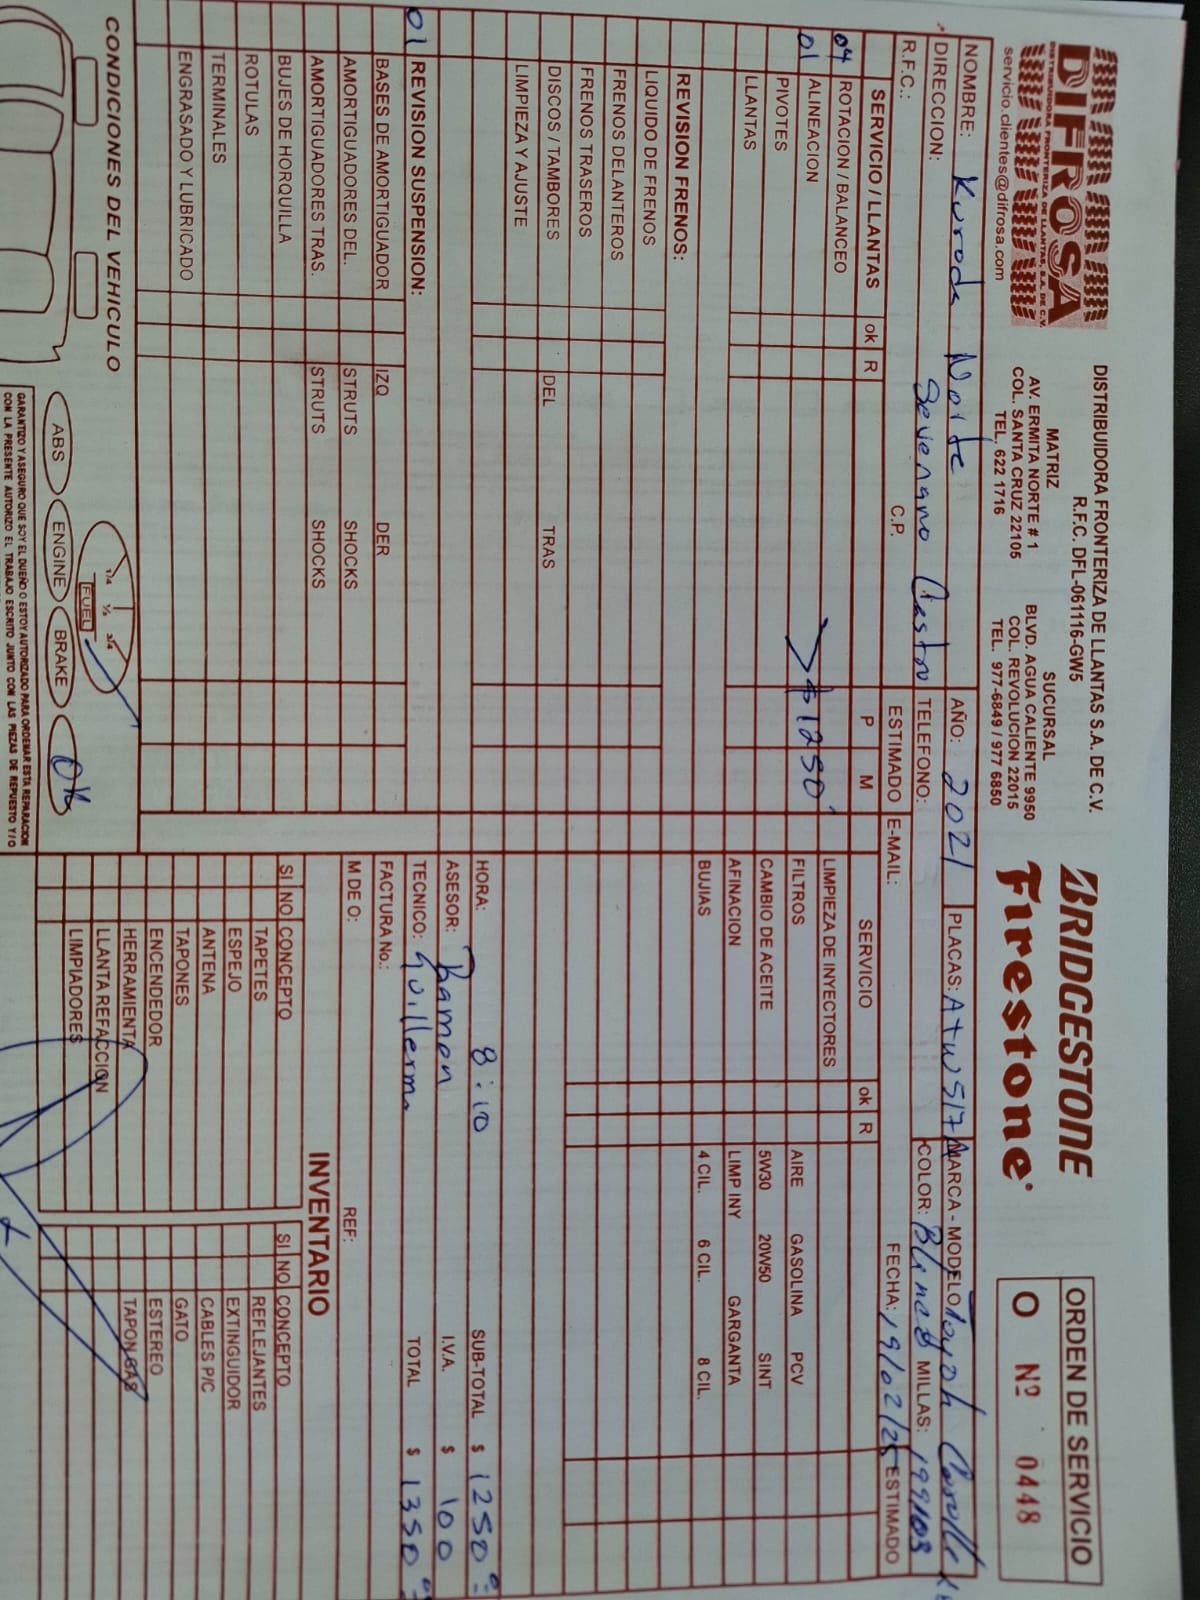 DIFROSA
DISTRIBUIDORA FRONTERIZA DE LLANTAS, S.A. DE C.V.
servicio.clientes@difrosa.com
DISTRIBUIDORA FRONTERIZA DE LLANTAS S.A. DE C.V.
R.F.C. DFL-061116-GW5
MATRIZ
AV. ERMITA NORTE # 1
COL. SANTA CRUZ 22105
TEL. 622 1716
SUCURSAL
BLVD. AGUA CALIENTE 9950
COL. REVOLUCION 22015
TEL. 977-6849 / 977 6850
BRIDGESTONE
Firestone
ORDEN DE SERVICIO
O Nº 0448
NOMBRE: Kuroda Norte AÑO: 2021 PLACAS: Atw517A MARCA - MODELO Toyota Corolla
DIRECCION: Severiano Castro TELEFONO: COLOR: Blanco MILLAS: 199103
R.F.C.: C.P. E-MAIL: FECHA: 19/02/25
SERVICIO / LLANTAS ok R ESTIMADO P M
04 ROTACION / BALANCEO
01 ALINEACION $1250
PIVOTES
LLANTAS
SERVICIO ok R ESTIMADO
LIMPIEZA DE INYECTORES
FILTROS AIRE GASOLINA PCV
CAMBIO DE ACEITE 5W30 20W50 SINT
AFINACION LIMP INY GARGANTA
BUJIAS 4 CIL. 6 CIL. 8 CIL.
REVISION FRENOS:
LIQUIDO DE FRENOS
FRENOS DELANTEROS
FRENOS TRASEROS
DISCOS / TAMBORES DEL TRAS
LIMPIEZA Y AJUSTE
01 REVISION SUSPENSION:
BASES DE AMORTIGUADOR IZQ DER
AMORTIGUADORES DEL. STRUTS SHOCKS
AMORTIGUADORES TRAS. STRUTS SHOCKS
BUJES DE HORQUILLA
ROTULAS
TERMINALES
ENGRASADO Y LUBRICADO
HORA: 8:10 SUB-TOTAL $ 1250
ASESOR: Ramon I.V.A. $ 100
TECNICO: Guillermo TOTAL $ 1350
FACTURA No.:
M DE O: REF:
INVENTARIO
SI NO CONCEPTO SI NO CONCEPTO
TAPETES REFLEJANTES
ESPEJO EXTINGUIDOR
ANTENA CABLES P/C
TAPONES GATO
ENCENDEDOR ESTEREO
HERRAMIENTA TAPON GAS
LLANTA REFACCION
LIMPIADORES
CONDICIONES DEL VEHICULO
1/4 1/2 3/4
FUEL
ABS ENGINE BRAKE OK
GARANTIZO Y ASEGURO QUE SOY EL DUEÑO O ESTOY AUTORIZADO PARA ORDENAR ESTA REPARACION
CON LA PRESENTE AUTORIZO EL TRABAJO ESCRITO JUNTO CON LAS PIEZAS DE REPUESTO Y/O